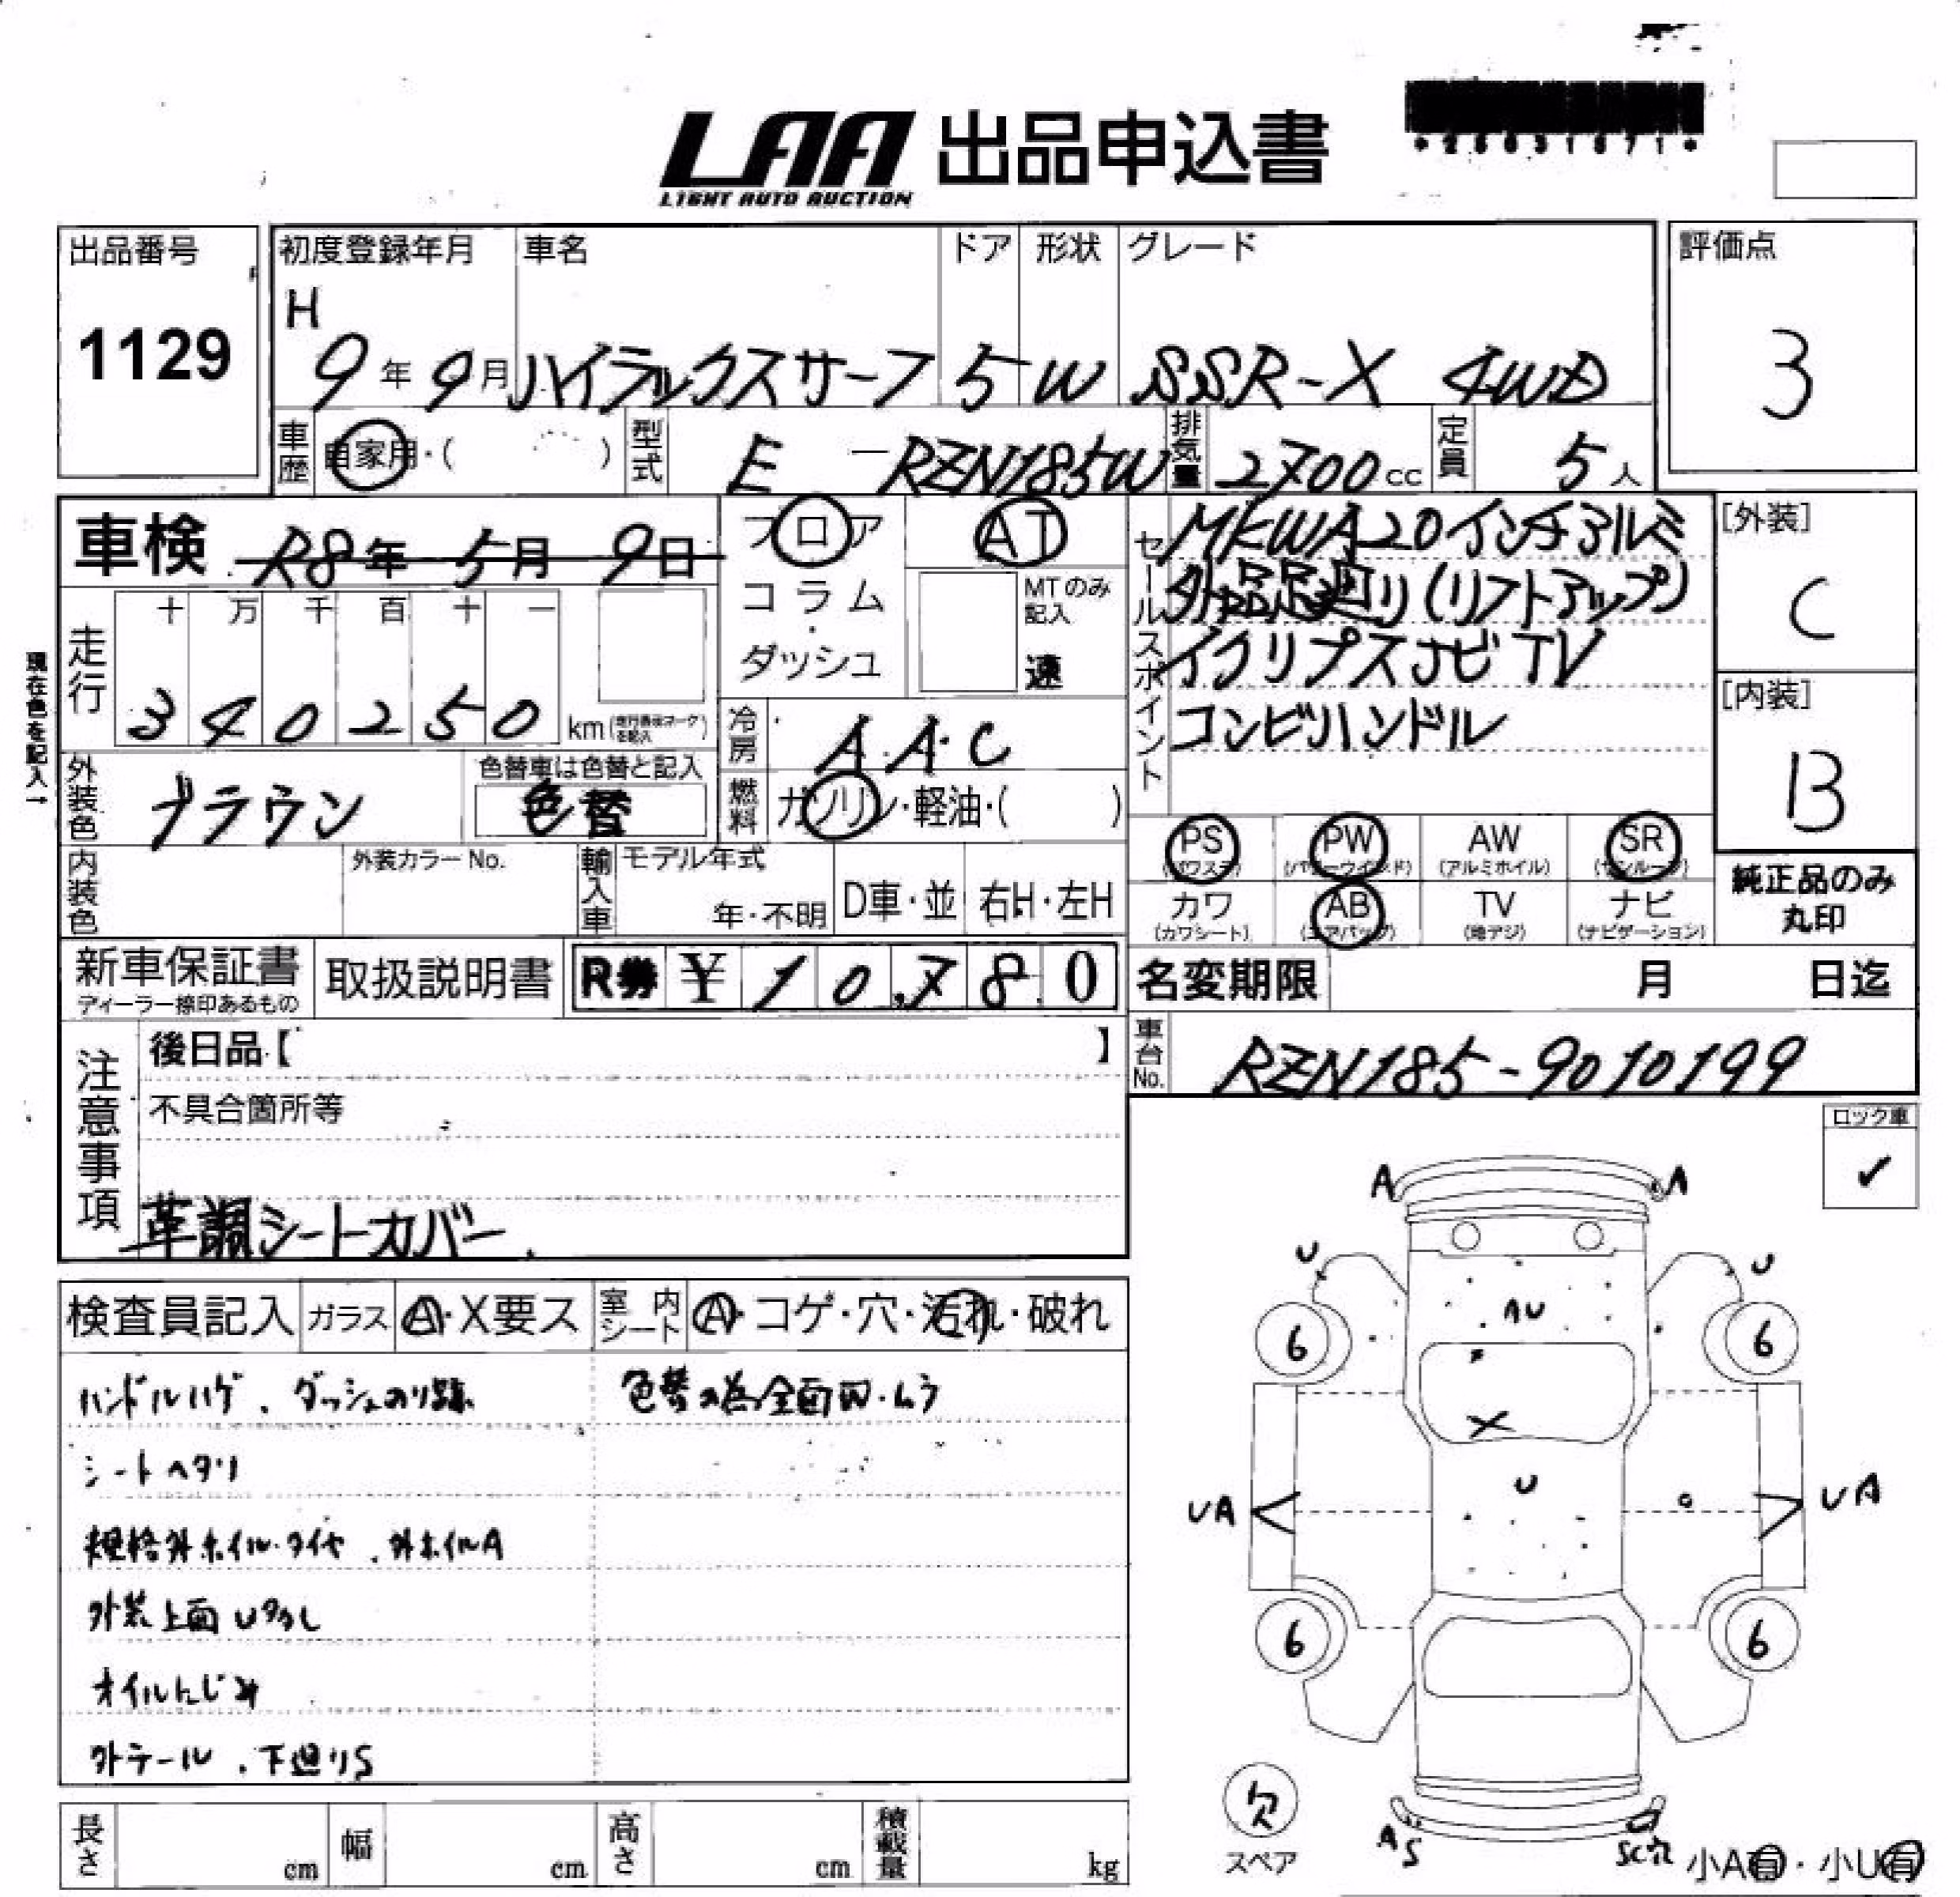 LAA 出品申込書
LIGHT AUTO AUCTION
出品番号
1129
初度登録年月
H
9年 9月
車名
ハイラックスサーフ
ドア
5
形状
W
グレード
SSR-X 4WD
評価点
3
車歴
自家用・( )
型式
E - RZN185W
排気量
2700cc
定員
5人
車検 R8年 5月 9日
フロア
コラム
・
ダッシュ
AT
MTのみ
記入
速
セールスポイント
MKWA20インチアルミ
外品足廻り(リフトアップ)
イクリプスナビ TV
コンビハンドル
[外装]
C
[内装]
B
現在色を記入→
走行
十 万 千 百 十 一
3 4 0 2 5 0 km
冷房
A.A.C
外装色
ブラウン
色替車は色替と記入
色替
燃料
ガソリン・軽油・( )
内装色
外装カラーNo.
輸入車
モデル年式
年・不明
D車・並
右H・左H
PS
(パワステ)
PW
(パワーウインド)
AW
(アルミホイル)
SR
(サンルーフ)
カワ
(カワシート)
AB
(エアバッグ)
TV
(地デジ)
ナビ
(ナビゲーション)
純正品のみ
丸印
新車保証書
ディーラー捺印あるもの
取扱説明書
R券 ¥ 10,780
名変期限 月 日迄
車台No.
RZN185-9010199
注意事項
後日品【 】
不具合箇所等
革調シートカバー
ロック車
✓
検査員記入
ガラス
A・X要ス
室内シート
A・コゲ・穴・汚れ・破れ
ハンドルハゲ、ダッシュのり跡
色替の為全面凹・ムラ
シートヘタリ
規格外ホイル・タイヤ、外ホイルA
外装上面U多し
オイルにじみ
外テール、下廻りS
A A
U U
AU
6 6
X
U
UA UA
6 6
欠
スペア
AS
SC穴
小A有・小U有
長さ cm
幅 cm
高さ cm
積載量 kg